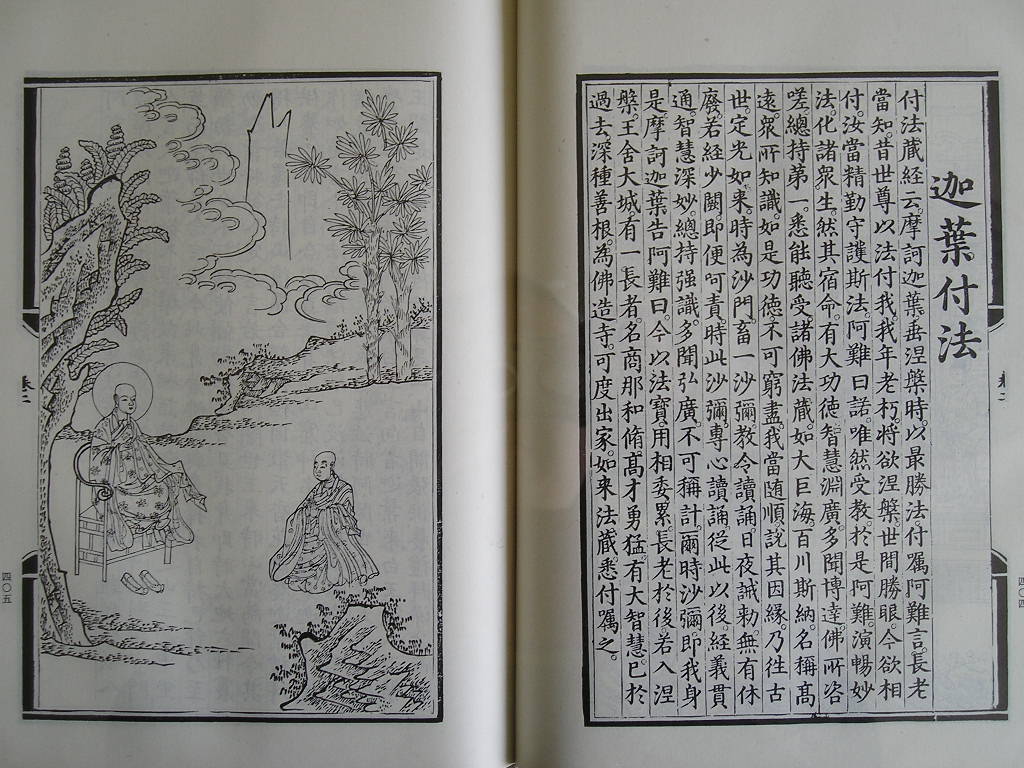 迦葉付法
付法藏經云摩訶迦葉垂涅槃時以最勝法付囑阿難言長老
當知昔世尊以法付我我年老朽將欲涅槃世間勝眼今欲相
付汝當精勤守護斯法阿難曰諾唯然受教於是阿難演暢妙
法化諸眾生然其宿命有大功德智慧淵廣多聞博達佛所咨
嗟總持第一悉能聽受諸佛法藏如大巨海百川斯納名稱髙
遠眾所知識如是功德不可窮盡我當随順說其因緣乃徃古
世定光如來時為沙門畜一沙彌教令讀誦日夜誡勅無有休
廢若經少闕即便呵責時此沙彌專心讀誦從此以後經義貫
通智慧深妙總持强識多聞弘廣不可稱計爾時沙彌即我身
是摩訶迦葉告阿難曰今以法寶用相委累長老於後若入涅
槃王舍大城有一長者名商那和脩髙才勇猛有大智慧已於
過去深種善根為佛造寺可度出家如來法藏悉付囑之
卷二
四〇四
卷二
四〇五